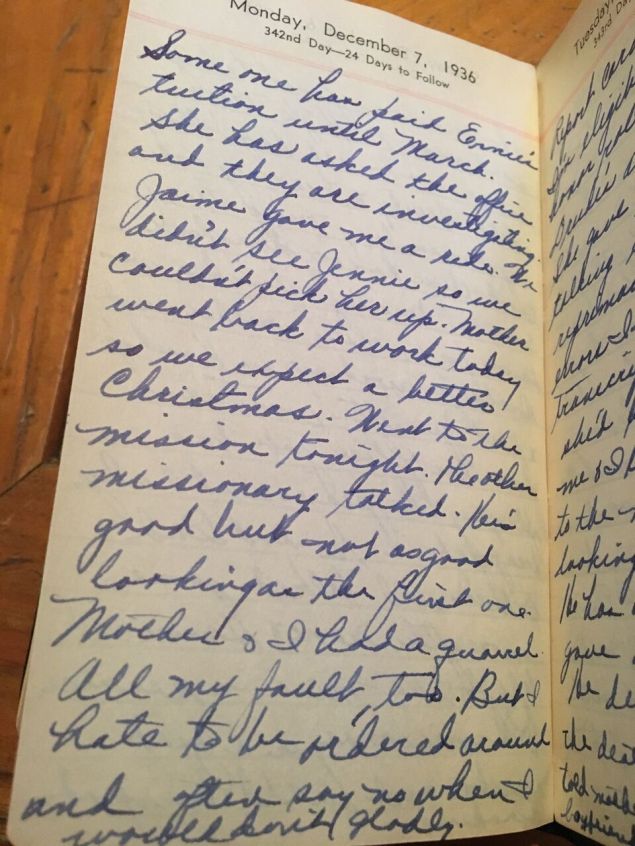 Monday, December 7, 1936
342nd Day—24 Days to Follow
Some one has paid Ernie's
tuition until March.
She has asked the office
and they are investigating.
Jaime gave me a ride. We
didn't see Jennie so we
couldn't pick her up. Mother
went back to work today
so we expect a better
Christmas. Went to the
mission tonight. The other
missionary talked. He's
good but not as good
looking as the first one.
Mother & I had a quarrel.
All my fault, too. But I
hate to be ordered around
and often say no when I
would do it gladly.
Tuesday,
343rd Da
Report Car
eligib
honor
She gave
talking
errors I
transcri
she'd
me & I
to the
looking
He has
gave
he de
The deat
told moth
boyfriend